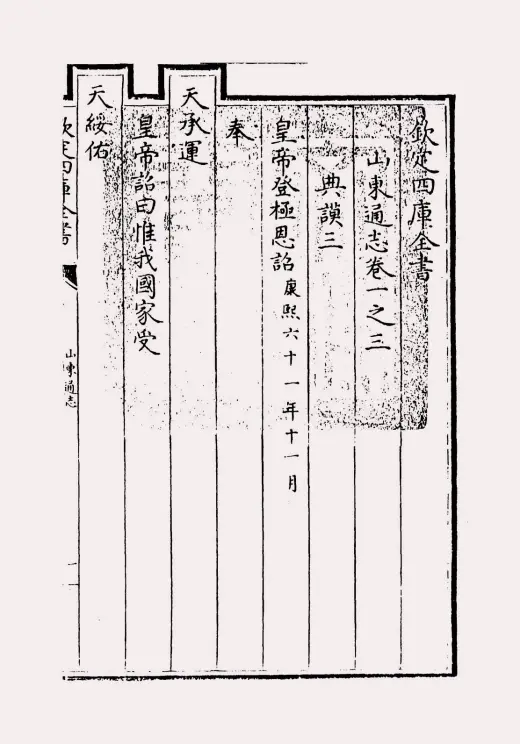 欽定四庫全書
山東通志卷一之三
典謨三
皇帝登極恩詔康熙六十一年十一月
奉
天承運
皇帝詔曰惟我國家受
天綏佑
欽定四庫全書
山東通志
一